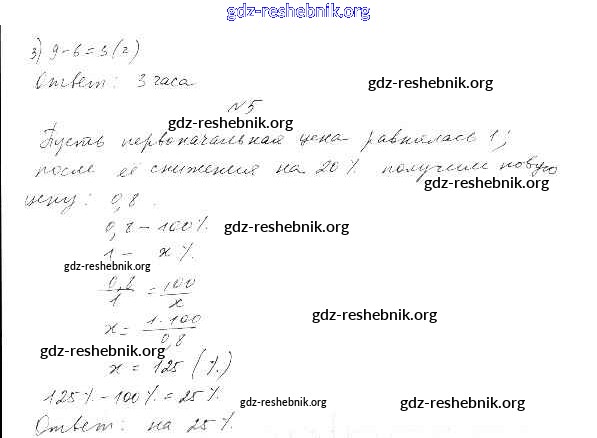 gdz-reshebnik.org
3) 9-6=3(г)
Ответ: 3 часа
gdz-reshebnik.org
№5
gdz-reshebnik.org
Пусть первоначальная цена равнялась 1;
после её снижения на 20% получили новую
gdz-reshebnik.org
цену: 0,8.
0,8 - 100%.
gdz-reshebnik.org
1 - x%.
gdz-reshebnik.org
0,8/1 = 100/x
x = 1·100/0,8
gdz-reshebnik.org
gdz-reshebnik.org
x = 125 (%)
125% - 100% = 25%.
gdz-reshebnik.org
gdz-reshebnik.org
Ответ: на 25%.